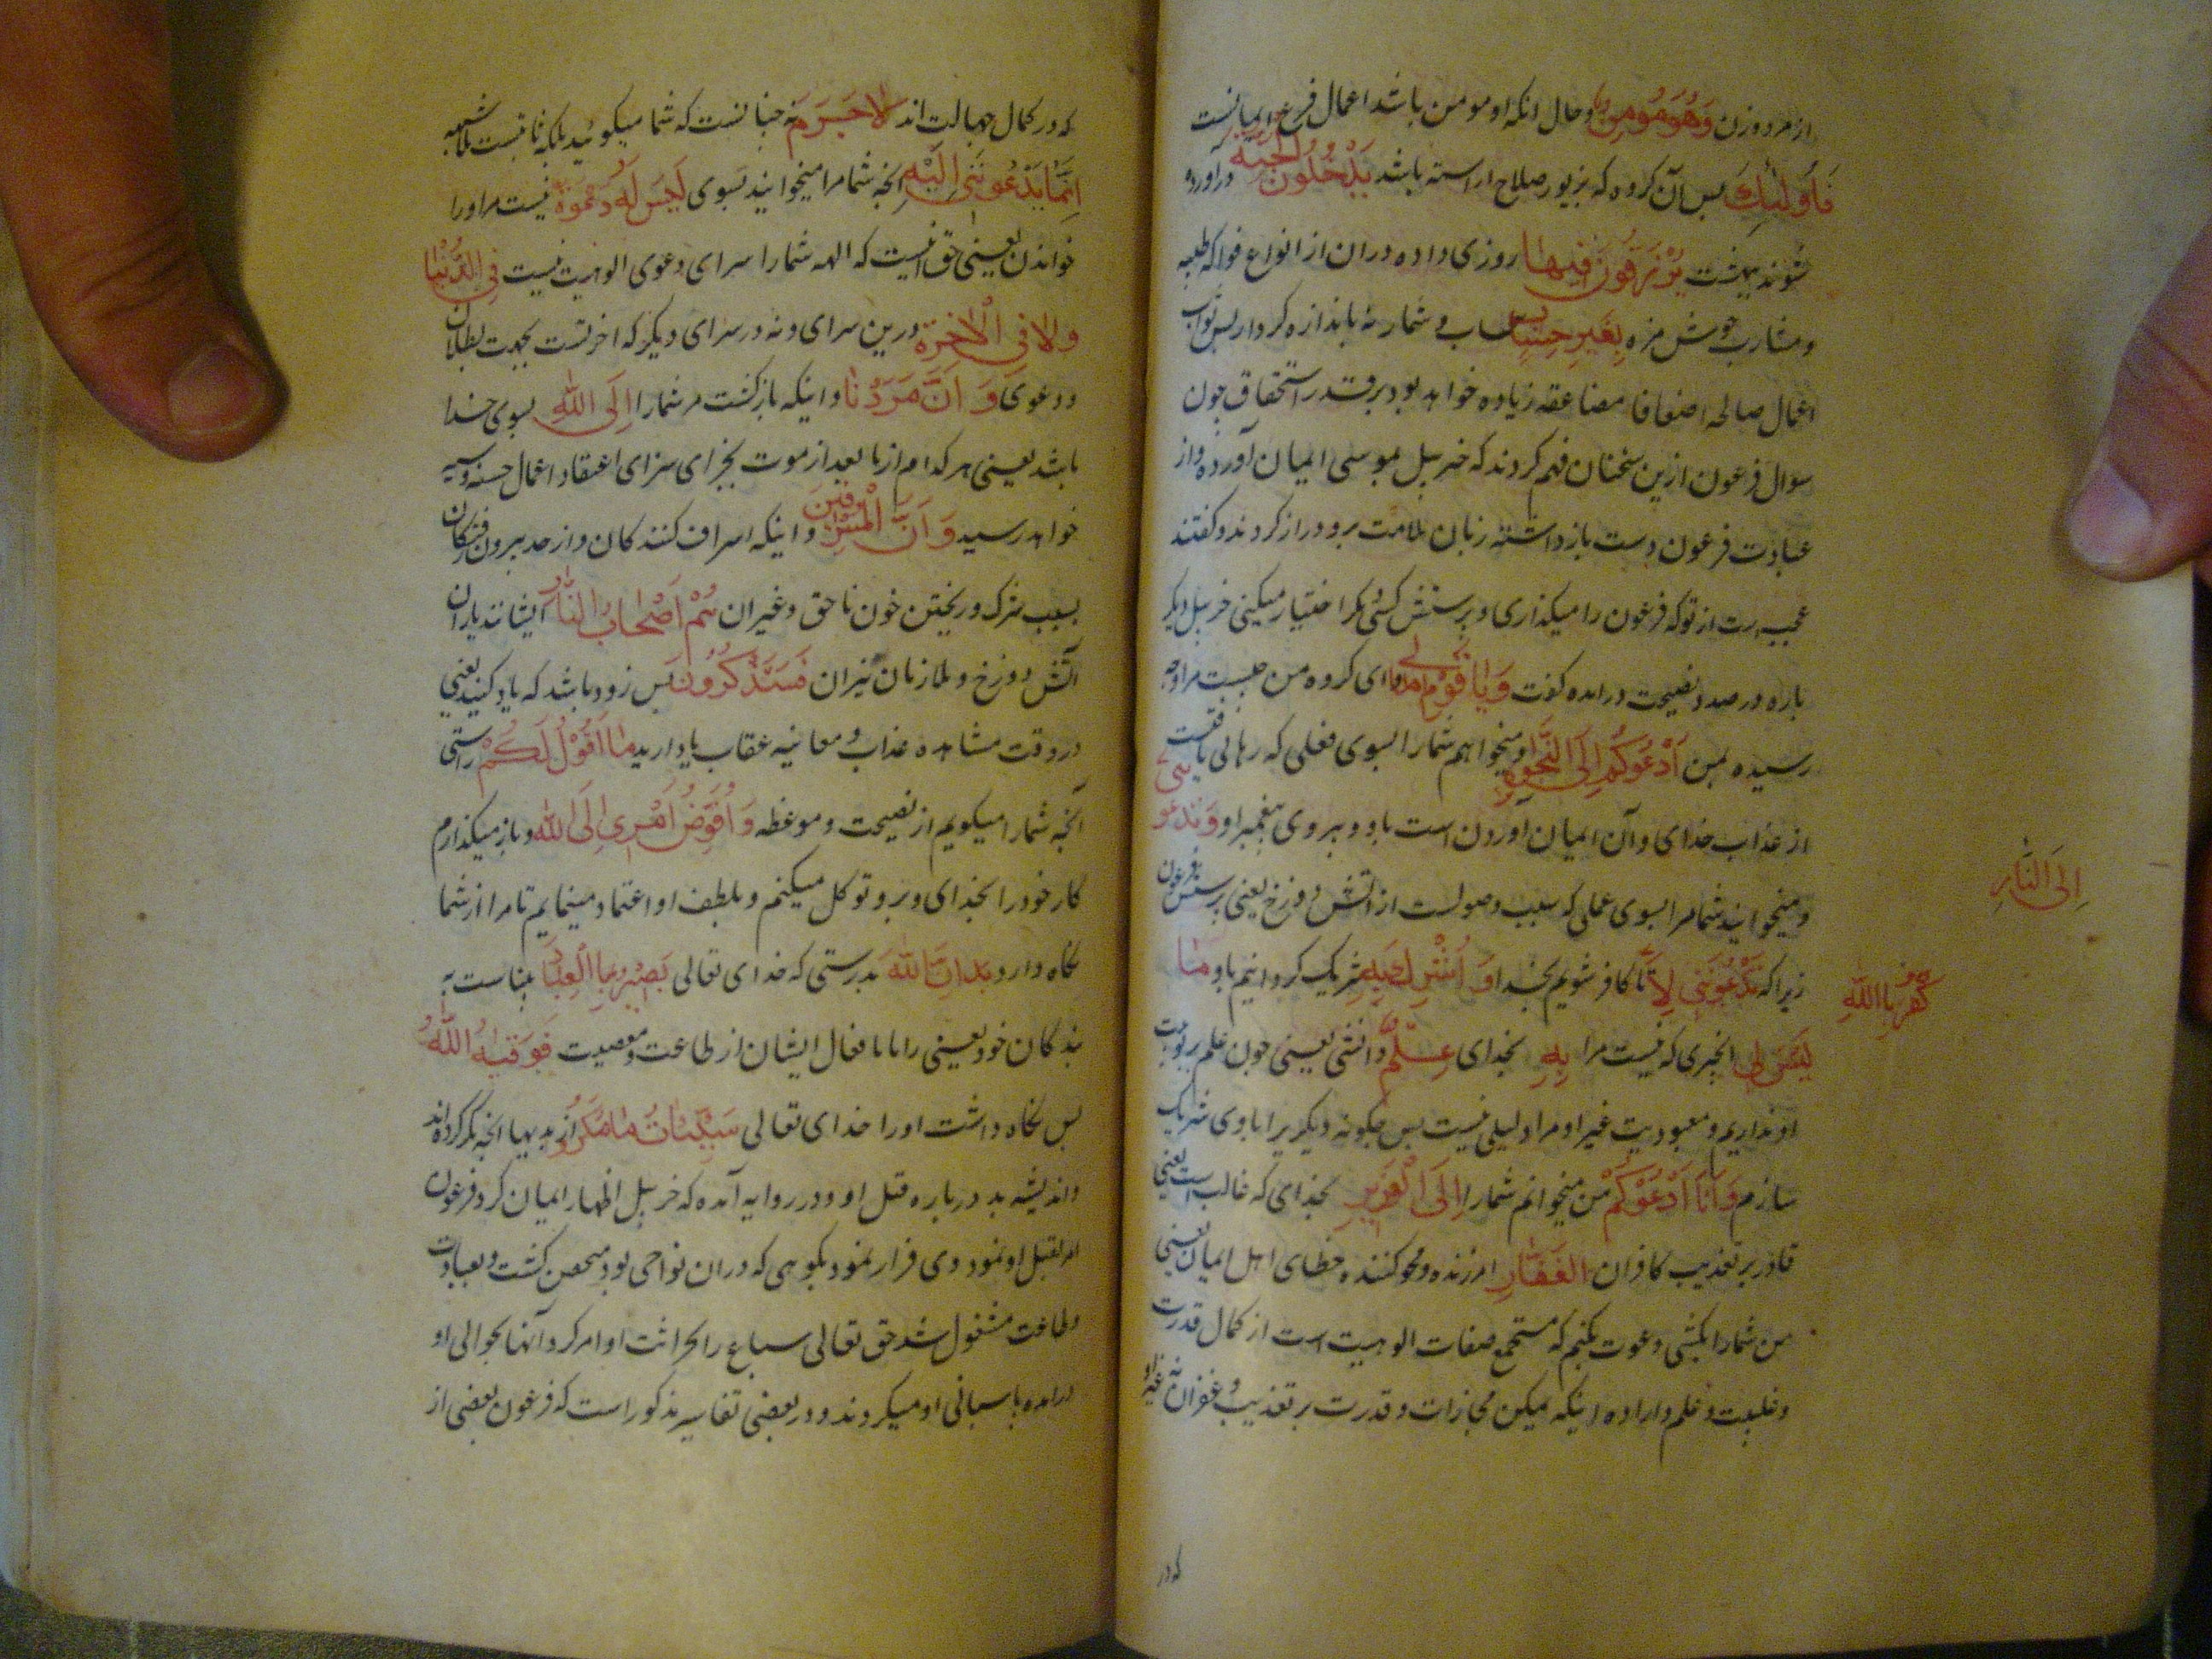 از مرد و زن وَهُوَ مُؤمِنٌ و حال انکه او مومن باشد اعمال فرع ایمانست
فَاُولٰئِكَ پس آن کروه که بزیور صلاح اراسته باشد یَدْخُلُونَ الجَنَّةَ دراورده
شوند ببهشت یُرْزَقُونَ فِیهَا روزی داده دران از انواع فواکه طیبه
و مشارب خوش مزه بِغَیرِ حِسَابٍ بیشمار نه باندازه کردار پس ثواب
اعمال صالحه اضعافا مضاعفه زیاده خواهد بود بر قدر استحقاق چون
سوال فرعون ازین سخنان فهم کردند که خربیل بموسی ایمان آورده و از
عبادت فرعون دست بازداشته زبان ملامت برو دراز کردند و کفتند
عجبست از تو که فرعون را میکذاری و پرستش کسی دیکر اختیار میکنی خربیل دیکر
باره در صدد نصیحت درامده کفت وَیَا قَوْمِ مَالِی ای کروه من چیست مرا و چه
رسیده بمن اَدْعُوکُمْ اِلَی النَّجٰوةِ و میخواهم شمارا بسوی فعلی که رهایی یافتست
از عذاب خدای و آن ایمان آوردن است باو و پیروی پیغمبر او وَتَدْعُونَنِی
اِلَی النَّارِ
و میخوانید شما مرا بسوی عملی که سبب وصولست از اتش دوزخ یعنی پرستش فرعون
زیرا که تَدْعُونَنِی لِاَکْفُرَ بِاللّٰهِ تا کافر شویم بخدا وَ اُشْرِكَ بِهِ شریک کردانیم باو مَا
لَیْسَ لِی انچیزی که نیست مرا بِهِ بخدای عِلْمٌ دانشی یعنی چون علم بربوبیت
او نداریم و معبودیت غیر او مرا دلیلی نیست پس چکونه دیکریرا با وی شریک
سازم وَاَنَا اَدْعُوکُمْ من میخوانم شمارا اِلَی الْعَزِیزِ بخدای که غالب است یعنی
قادر بر تعذیب کافران الغَفَّارِ امرزنده و محو کننده خطای اهل ایمان یعنی
من شمارا بکسی دعوت میکنم که مستجمع صفات الوهیت است از کمال قدرت
و غلبیت و علم و اراده و اینکه ممکن مجازات و قدرت بر تعذیب و غفران نه غیر او
که در
که در کمال جهالت اند لَا جَرَمَ نه چنانست که شما میکوئید بلکه ثابتست بلا شبهه
اِنَّمَا تَدْعُونَنِی اِلَیْهِ انچه شما مرا میخوانید بسوی لَیْسَ لَهُ دَعْوَةٌ نیست مر او را
خواندن یعنی حق انیست که الهه شمارا سرای دعوی الوهیت نیست فِی الدُّنْیَا
وَلَا فِی الْاٰخِرَةِ درین سرای و نه در سرای دیکر که اخرتست بجهت بطلان
و دعوی وَ اَنَّ مَرَدَّنَا و اینکه بازکشت مر شمارا اِلَی اللّٰهِ بسوی خدا
باشد یعنی هر کدام از ما بعد از موت بجزای سزای اعتقاد اعمال حسنه و سیه
خواهد رسید وَ اَنَّ الْمُسْرِفِینَ و اینکه اسراف کنندکان و از حد بیرون رفتکان
بسبب شرک و ریختن خون ناحق و غیر ان هُمْ اَصْحَابُ النَّارِ ایشانند یاران
آتش دوزخ و ملازمان نیران فَسَتَذْکُرُونَ پس زود باشد که یاد کنید یعنی
در وقت مشاهده عذاب و معاینه عقاب یاد ارید مَا اَقُوْلُ لَکُمْ راستی
آنچه شمارا میکویم از نصیحت و موعظه وَ اُفَوِّضُ اَمْرِی اِلَی اللّٰهِ و باز میکذارم
کار خود را بخدای و برو توکل میکنم و بلطف او اعتماد مینمایم تا مرا از شما
نکاه دارد اِنَّ اللّٰهَ بدرستی که خدای تعالی بَصِیرٌ بِالْعِبَادِ بیناست به
بندکان خود یعنی داناست بافعال ایشان از طاعت و معصیت فَوَقٰیهُ اللّٰهُ
پس نکاه داشت او را خدای تعالی سَیِّئَاتِ مَا مَکَرُوا از بدیها انچه مکر کرده اند
و اندیشه بد درباره قتل او و در روایه آمده که خربیل اظهار ایمان کرد فرعون
امر بقتل او نمود وی فرار نمود بکوهی که دران نواحی بود متحصن کشت و بعبادت
و طاعت مشغول شد حق تعالی سباع را بحراثت او امر کرد آنها بحوالی او
درامده پاسبانی او میکردند و در بعضی تفاسیر مذکور است که فرعون بعضی از